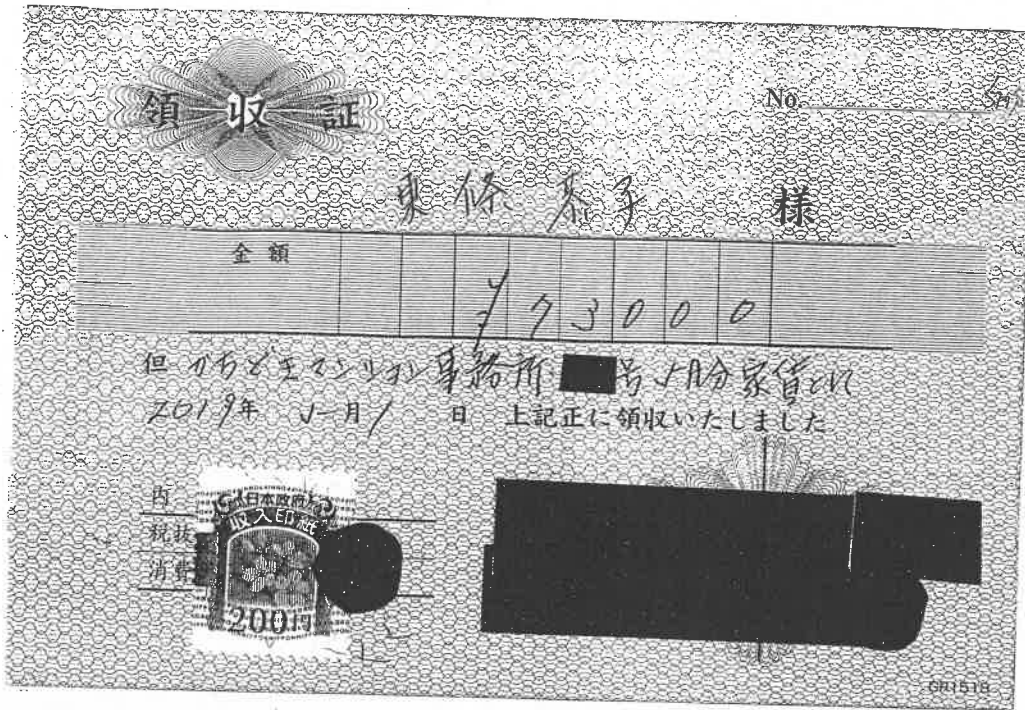 領収証
No.
東條恭子 様
金額
¥73000
但 かちどきマンション事務所 号 5月分家賃として
2019年 5月1日 上記正に領収いたしました
内
税抜
消費
日本政府
収入印紙
200円
GR1518